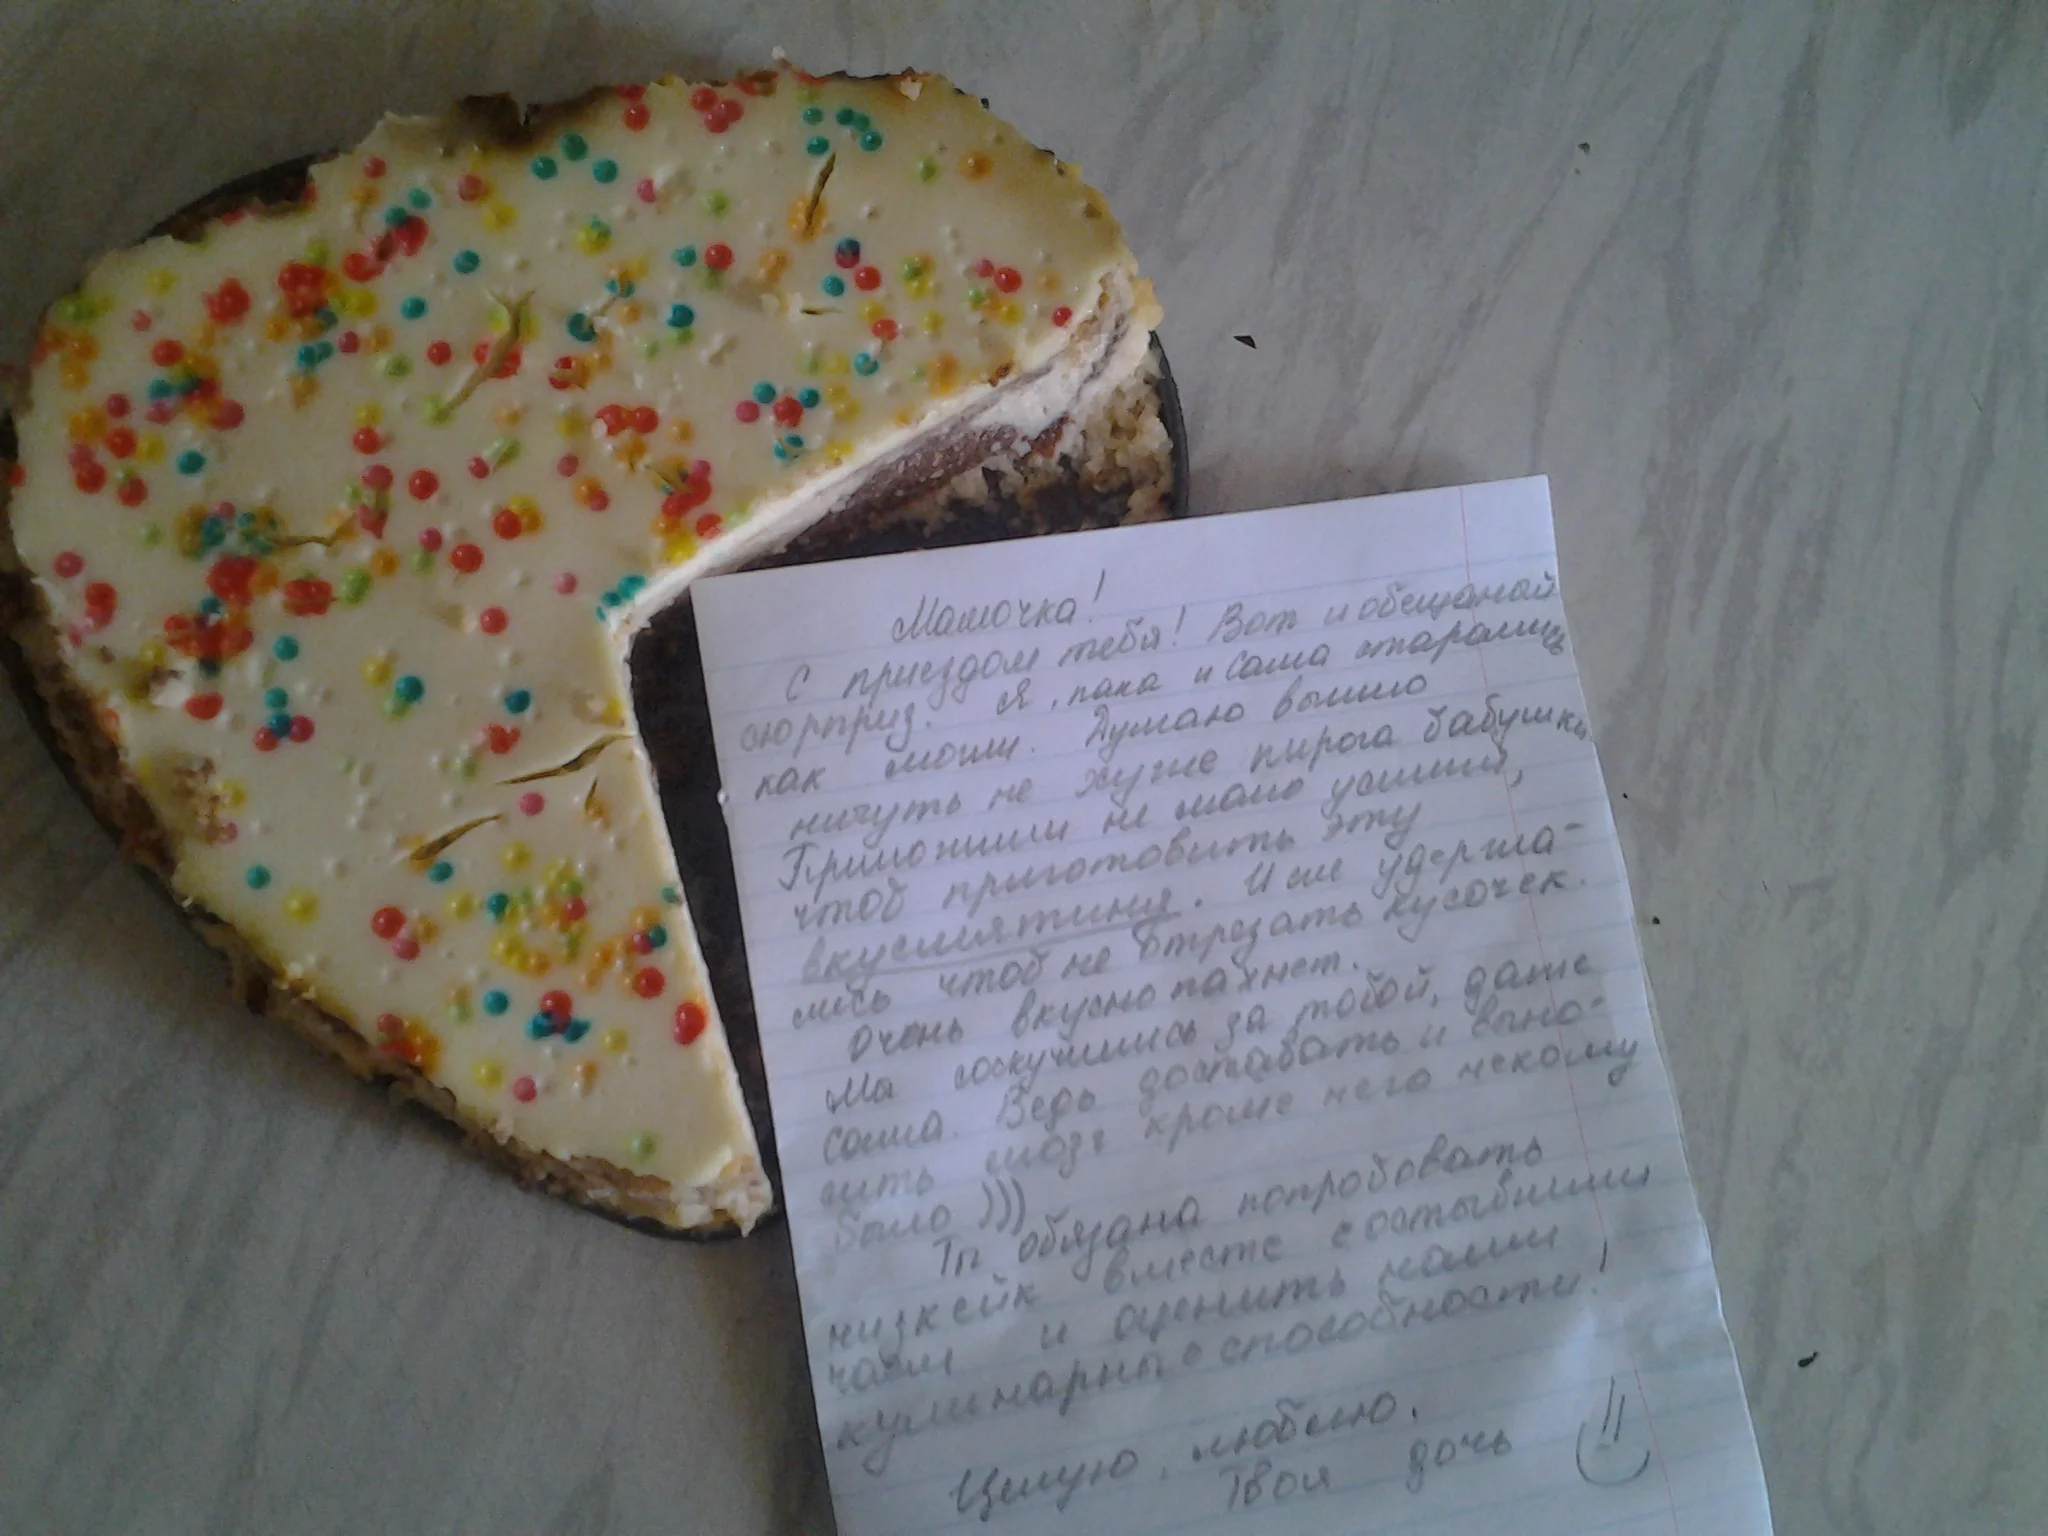 Мамочка!
С приездом тебя! Вот и обещаный
сюрприз. Я, папа и Саша старались
как могли. Думаю вышло
ничуть не хуже пирога бабушки.
Приложили не мало усилий,
чтоб приготовить эту
вкуснятину. И еле удержа-
лись чтоб не отрезать кусочек.
Очень вкусно пахнет.
Мы соскучились за тобой, даже
Саша. Ведь доставать и выно-
сить мозг кроме него некому
было )))
Ты обязана попробовать
чизкейк вместе с остывшим
чаем и оценить наши
кулинарные способности!
Целую, люблю.
Твоя дочь